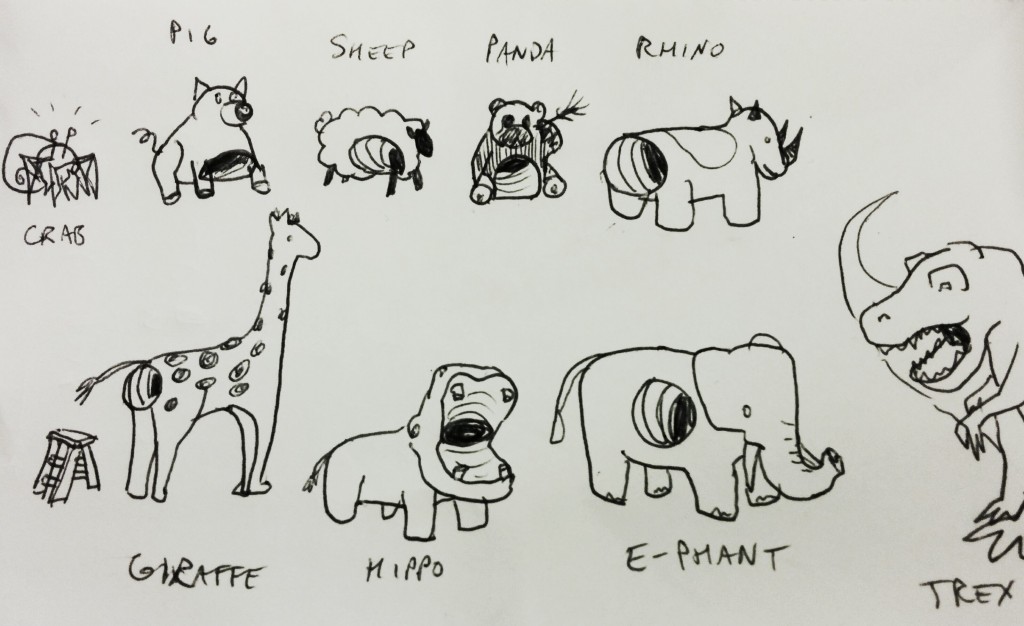 PIG
SHEEP
PANDA
RHINO
CRAB
GIRAFFE
HIPPO
E-PHANT
TREX